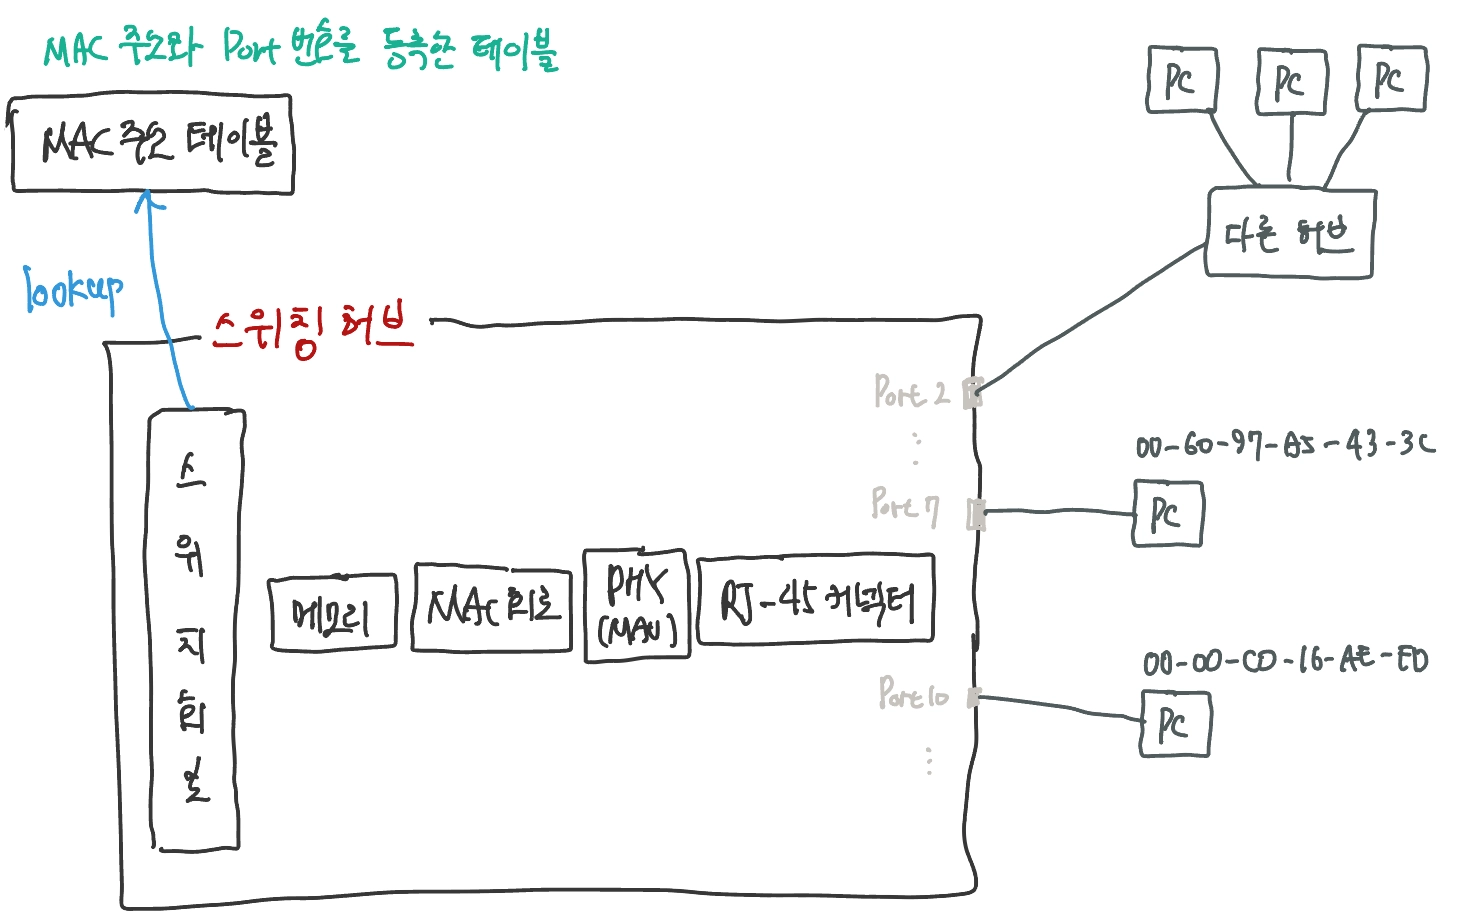 MAC 주소와 Port 번호를 등록한 테이블
MAC 주소 테이블
lookup
스위칭 허브
스위치회로
메모리
MAC 회로
PHY
(MAU)
RJ-45 커넥터
Port 2
Port 7
Port 10
PC
PC
PC
다른 허브
00-60-97-A5-43-3C
PC
00-00-C0-16-AE-FD
PC